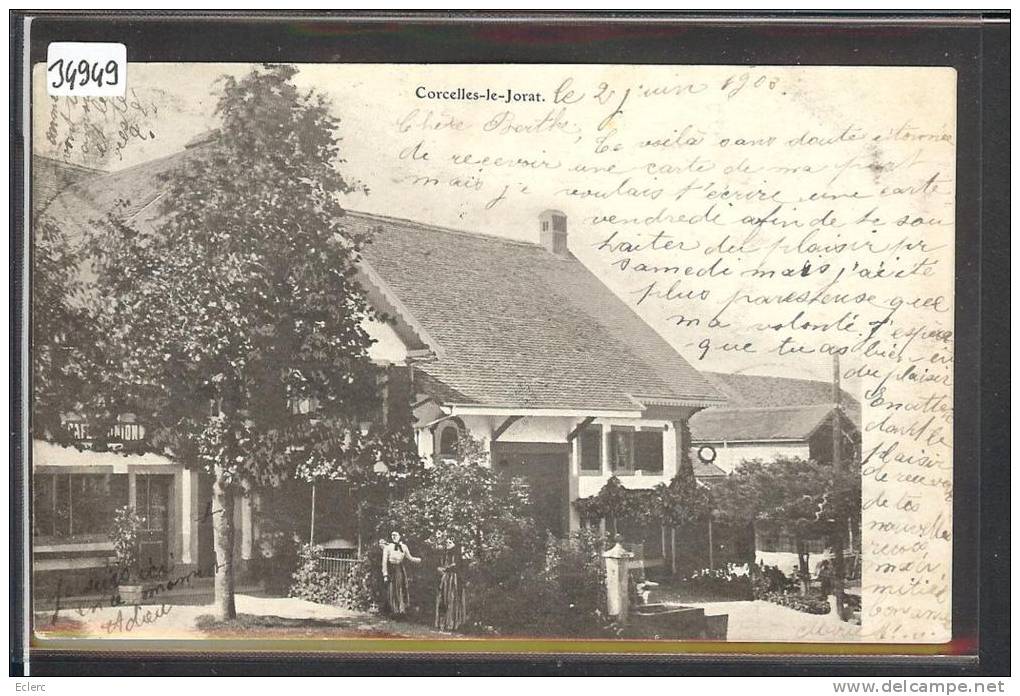 34949
Corcelles-le-Jorat. le 2 juin 1903.
Chère Berthe,
Te voilà sans doute étonnée
de recevoir une carte de ma part
mais je voulais t'écrire une carte
vendredi afin de te sou
haiter du plaisir pr
samedi mais j'ai été
plus paresseuse que
ma volonté. J'espère
que tu as bien eu
du plaisir
En attendant le
plaisir
de recevoir
de tes
nouvelles
reçois
mes
amitiés
bons
CAFÉ UNION
je suis ici
en ce moment
Adieu
Eclerc
www.delcampe.net